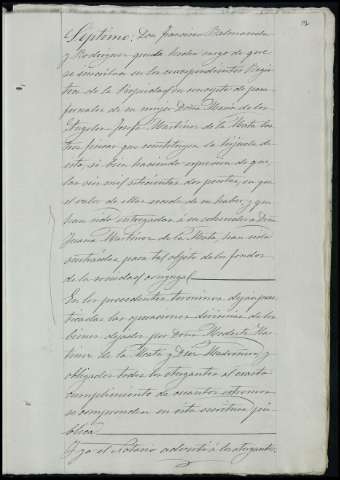 Septimo: Don Francisco Balmaseda
y Rodriguez queda hecho cargo de que
se inscriban en los correspondientes Regis
tros de la Propiedad en concepto de para
fernales de su mujer Doña Maria de los
Angeles Josefa Martinez de la Mata las
tres fincas que constituyen la hijuela de
esta, si bien haciendo expresion de que
las seis mil setecientas dos pesetas, en que
el valor de ellas escede de su haber, y que
han sido entregadas á su sobrina Doña
Juana Martinez de la Mata, han sido
para tal objeto de los fondos
de la sociedad conyugal
En los precedentes terminos dejan prac
ticadas las operaciones divisorias de los
bienes dejados por Doña Modesta Mar
tinez de la Mata y Diez Madroñero, y
obligados todos los otorgantes al exacto
cumplimiento de cuantos estremos
se comprenden en esta escritura pu
blica.
Y yo el Notario advertí á los otorgantes